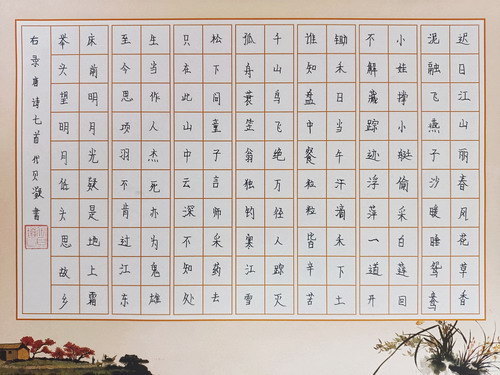 迟日江山丽春风花草香
泥融飞燕子沙暖睡鸳鸯
小娃撑小艇偷采白莲回
不解藏踪迹浮萍一道开
锄禾日当午汗滴禾下土
谁知盘中餐粒粒皆辛苦
千山鸟飞绝万径人踪灭
孤舟蓑笠翁独钓寒江雪
松下问童子言师采药去
只在此山中云深不知处
生当作人杰死亦为鬼雄
至今思项羽不肯过江东
床前明月光疑是地上霜
举头望明月低头思故乡
右录唐诗七首 贝凝书